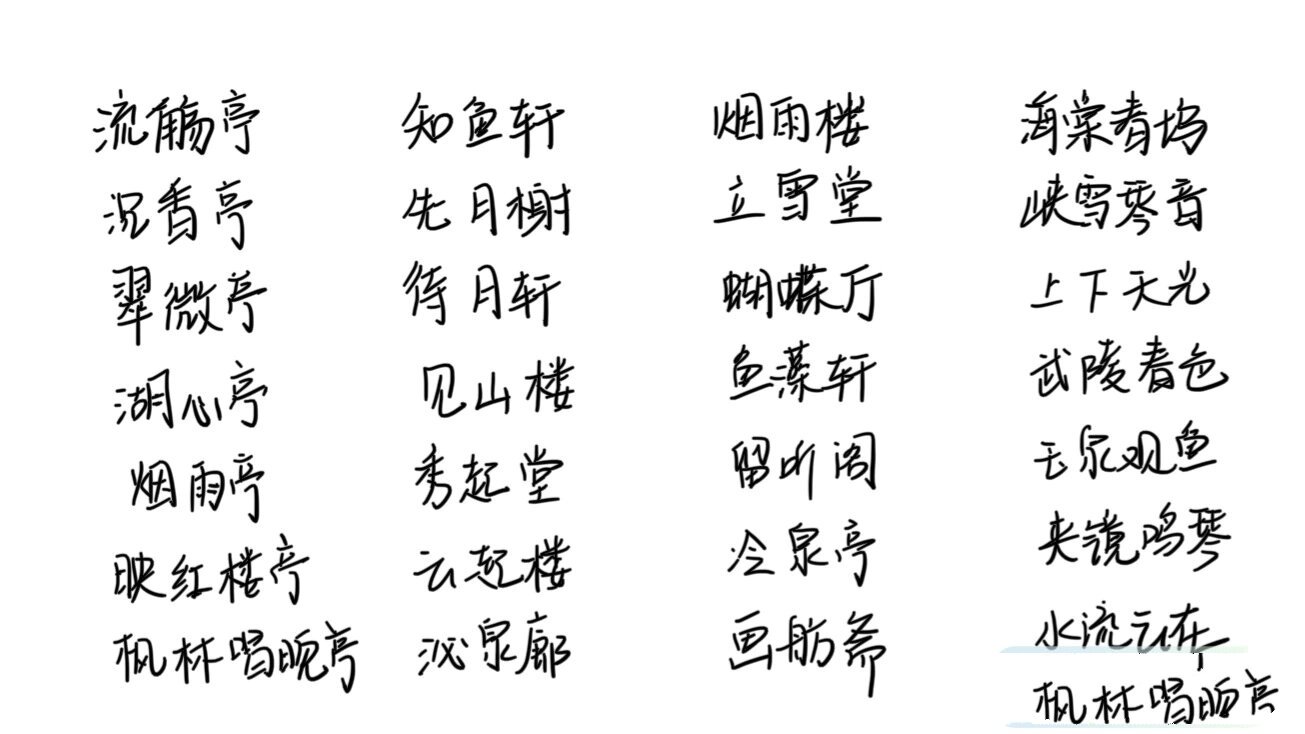 流觞亭
沉香亭
翠微亭
湖心亭
烟雨亭
映红楼亭
枫林唱晚亭
知鱼轩
先月榭
待月轩
见山楼
秀起堂
云起楼
泌泉廊
烟雨楼
立雪堂
蝴蝶厅
鱼藻轩
留听阁
冷泉亭
画舫斋
海棠春坞
峡雪琴音
上下天光
武陵春色
玉泉观鱼
夹镜鸣琴
水流云在
枫林唱晚亭